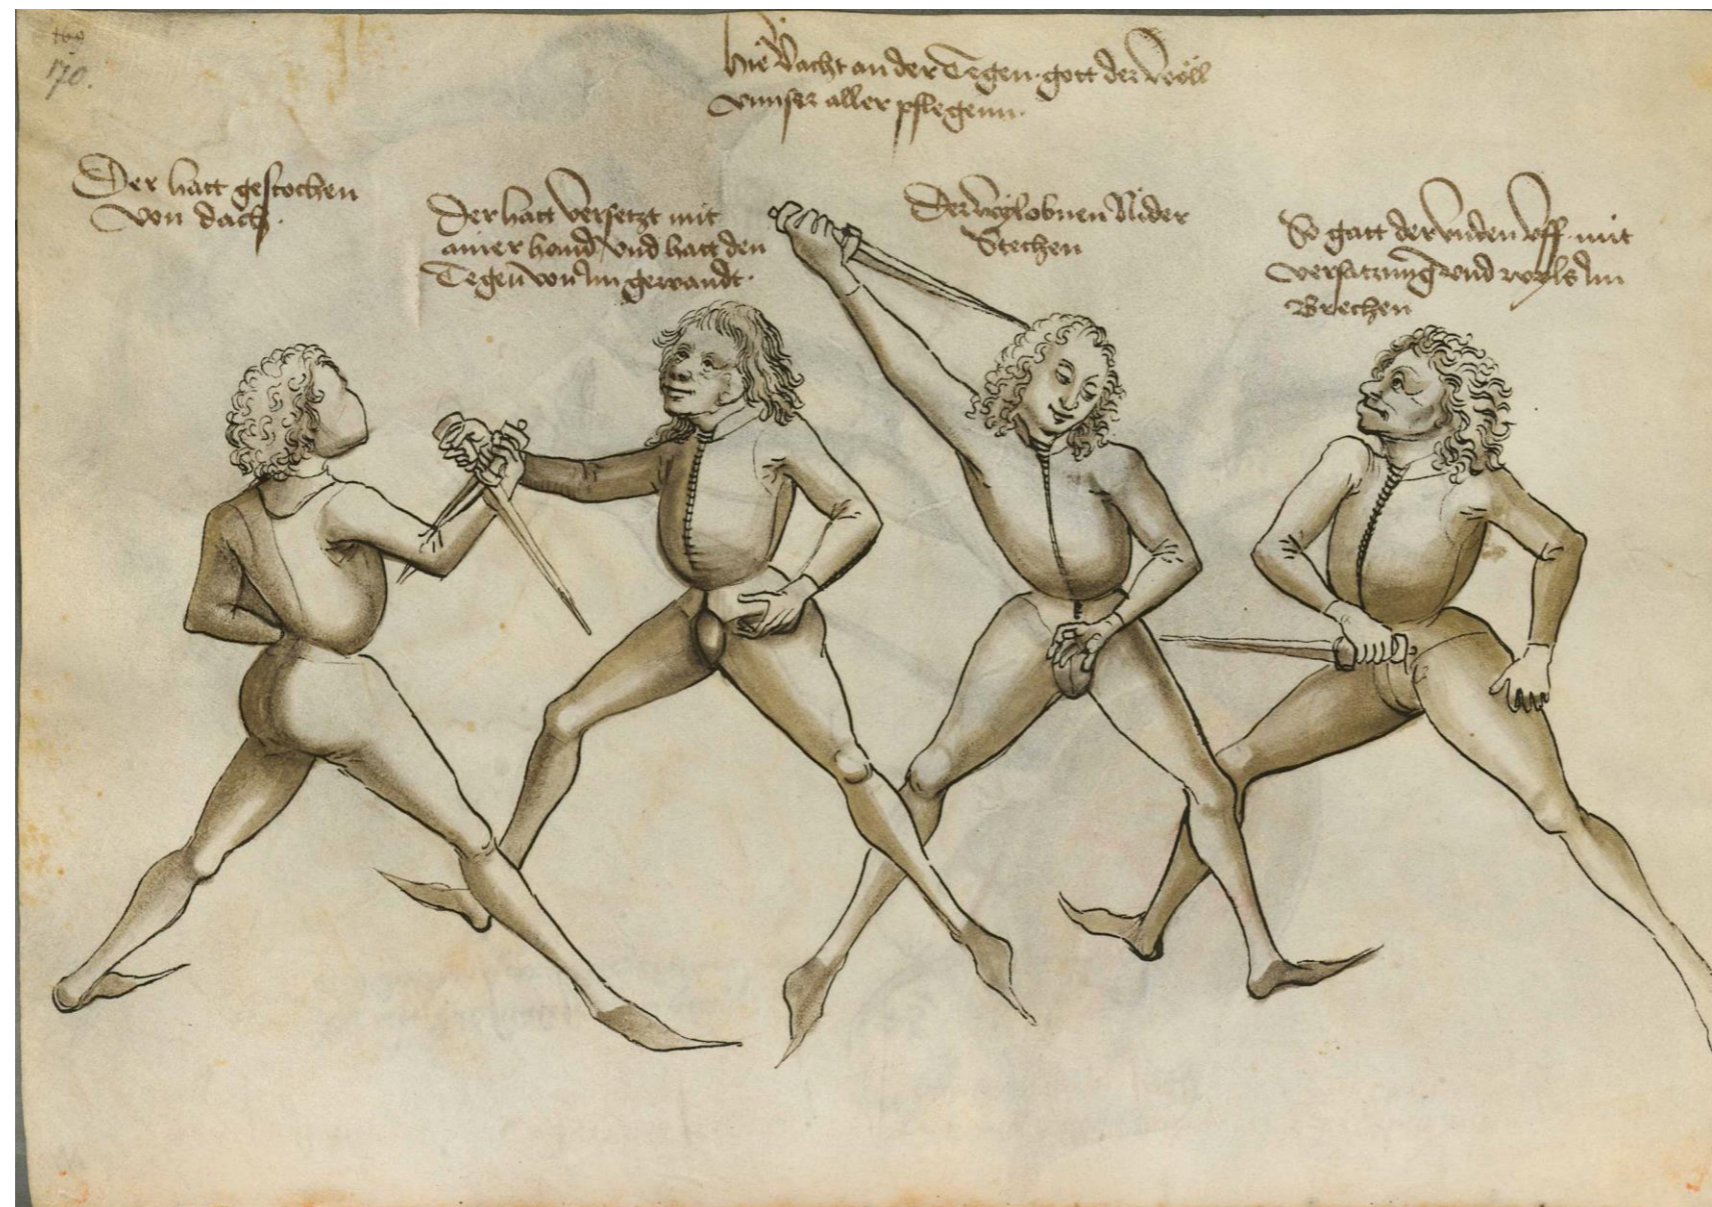 170.
Hie vacht an der Tegen · gott der wöll
vnnser aller pflegenn ·
Der hatt gestochen
von dach ·
Der hatt versetzt mit
ainer hand vnd hatt den
Tegen von Im gewandt ·
Der wyl obnen Nider
Stechen
So gatt der vnden vff mit
versatzung vnd wyls Im
Brechen